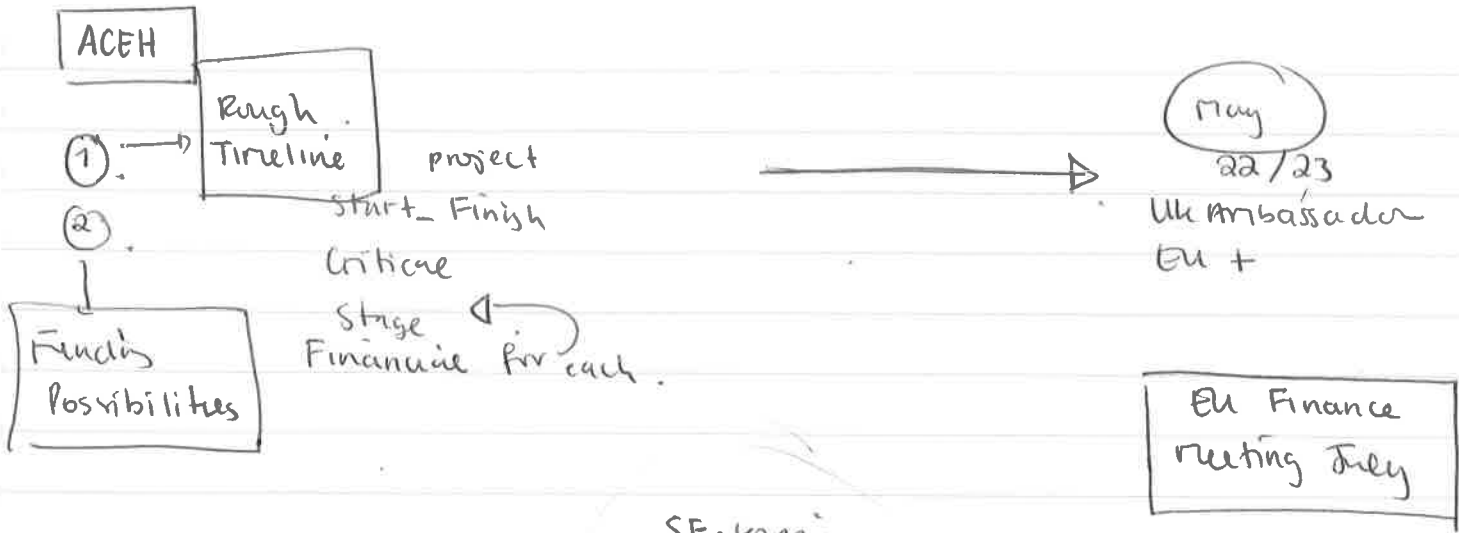 ACEH
①. Rough
Timeline
project
Start - Finish
Critical
Stage
Financial for each.
②.
Funding
Possibilities
May
22/23
UK Ambassador
EU +
EU Finance
meeting July